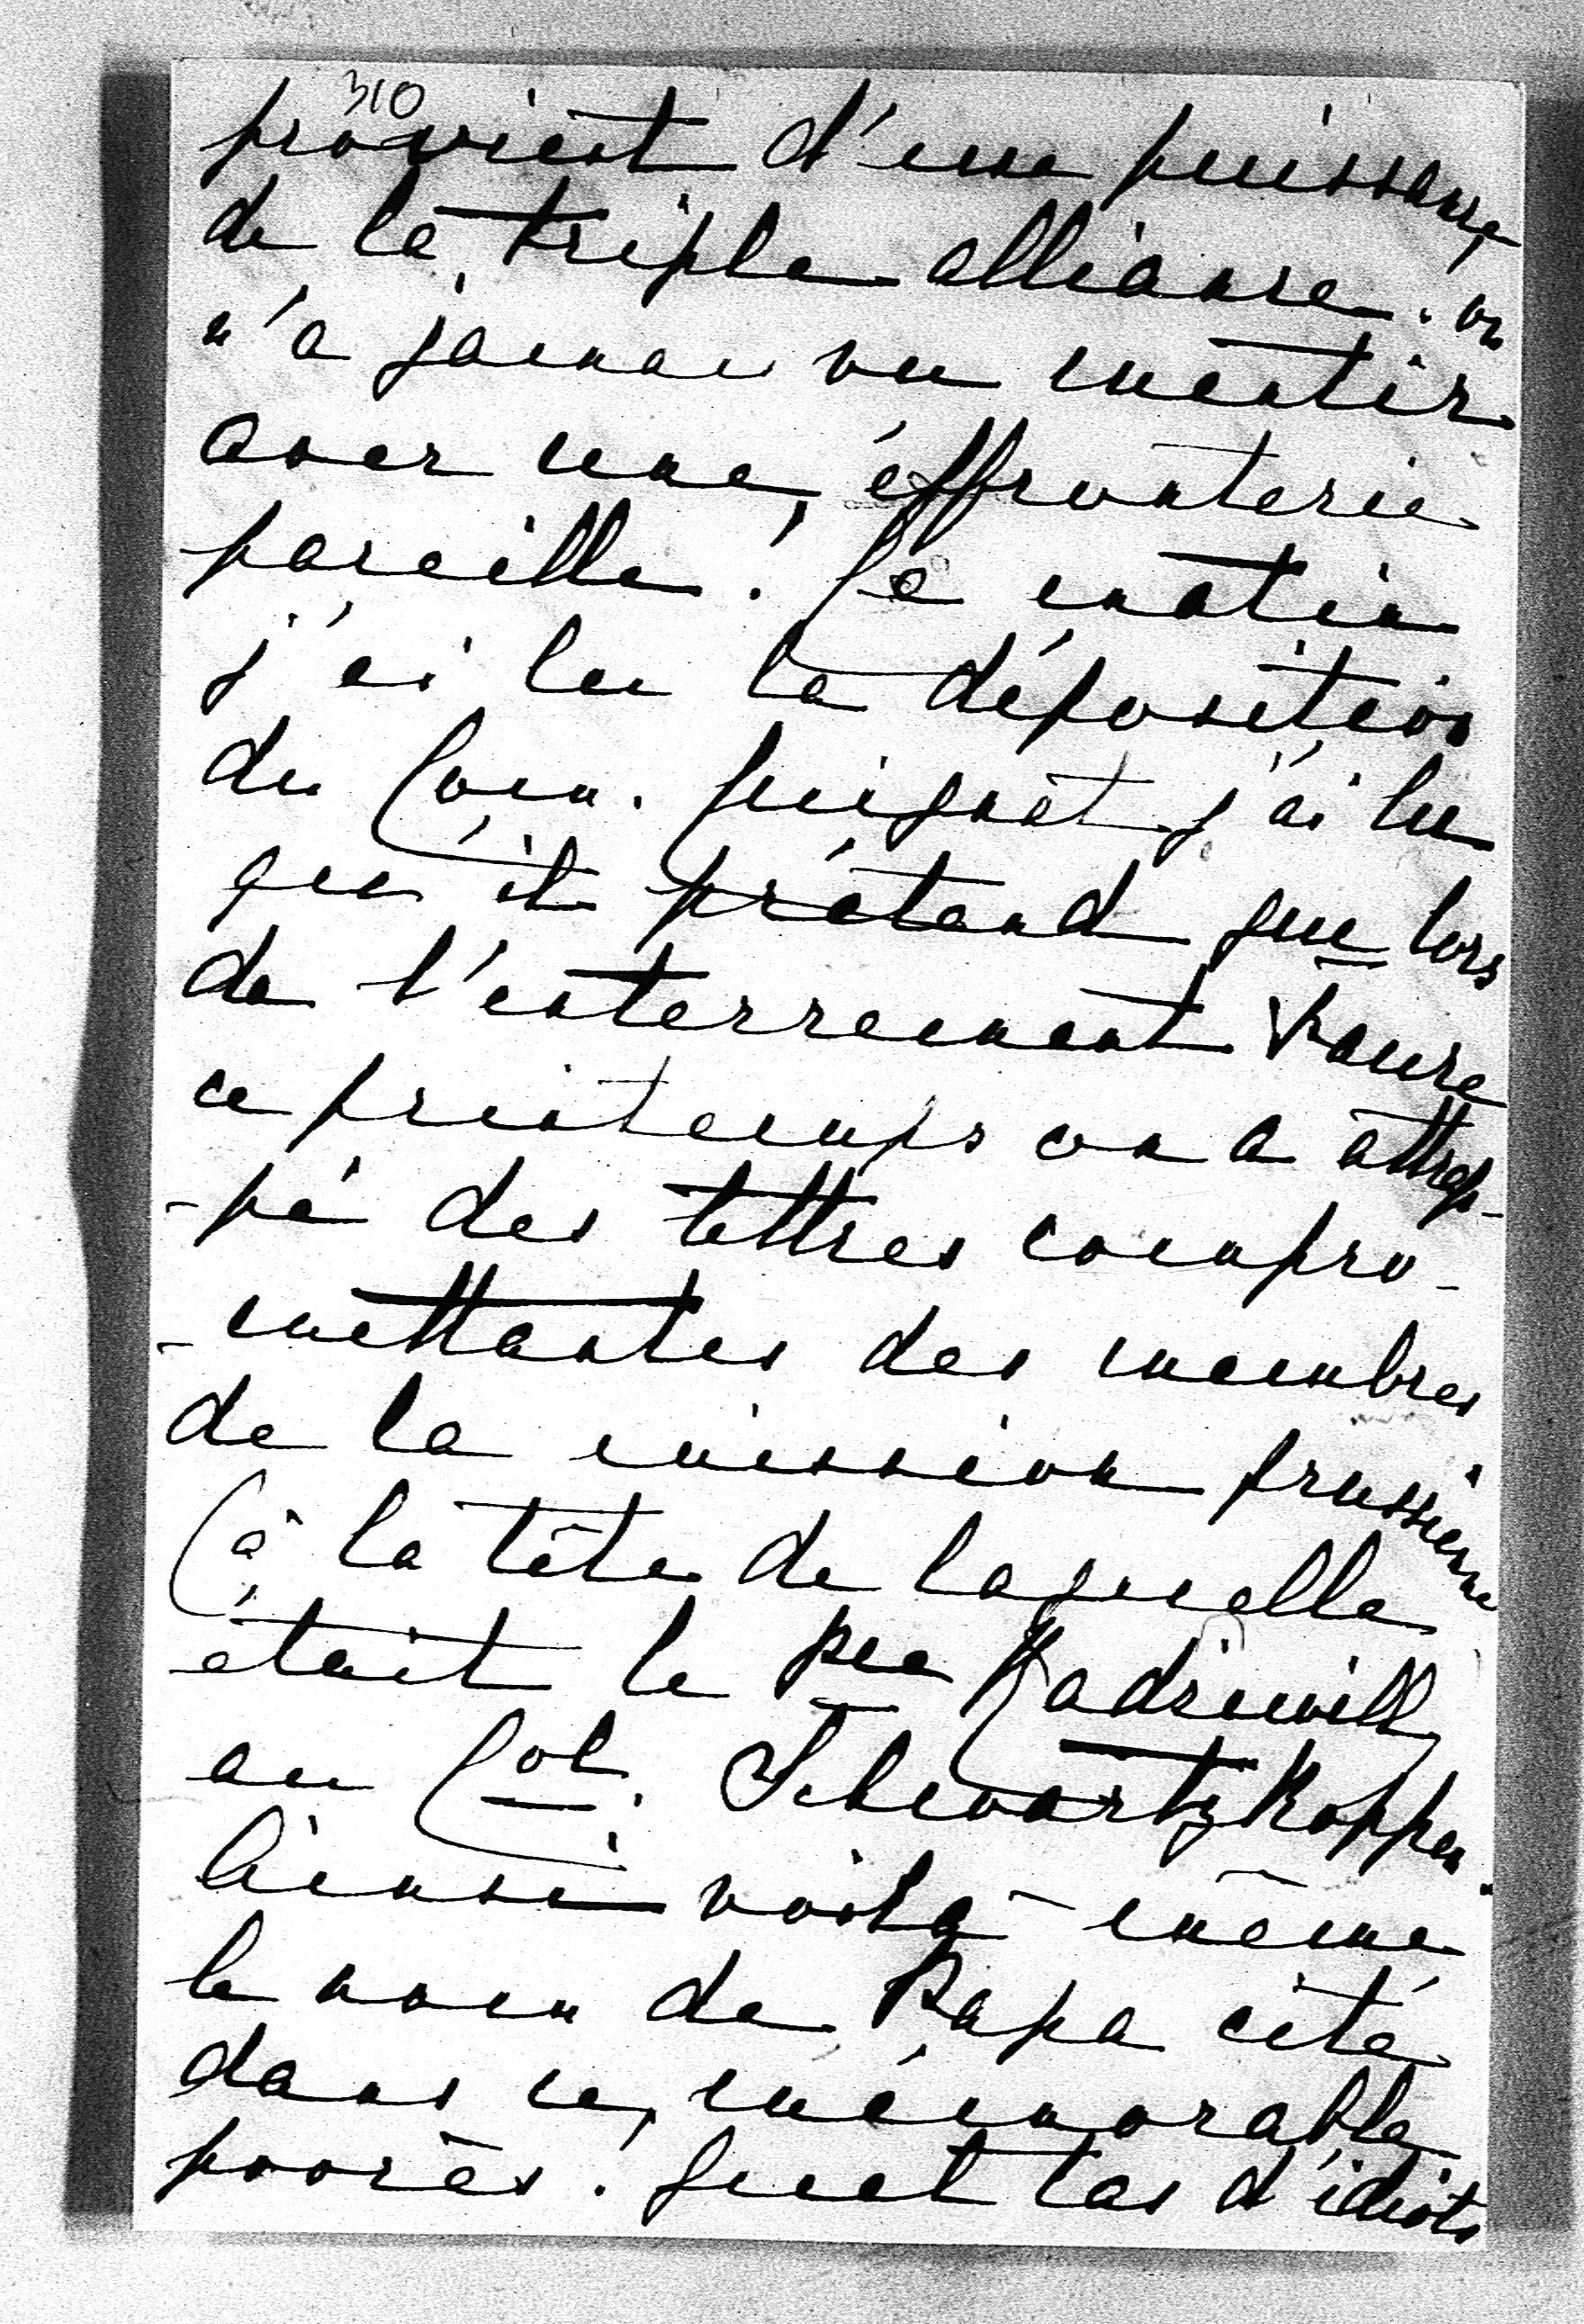 310
provient d'une puissance
de la triple alliance. on
n'a jamais vu mentir
avec une éffronterie
pareille! Ce matin
j'ai lu la déposition
du Com. Cuignet j'ai lu
qu'il prétend que lors
de l'enterrement Faure
ce printemps on a attrap-
-pé des lettres compro-
-mettantes des membres
de la mission prussienne
(à la tête de laquelle
était le pce Radziwill)
au Col. Schwartzkoppen.
Ainsi voilà même
le nom de Papa cité
dans ce mémorable
procès! Quel tas d'idiots